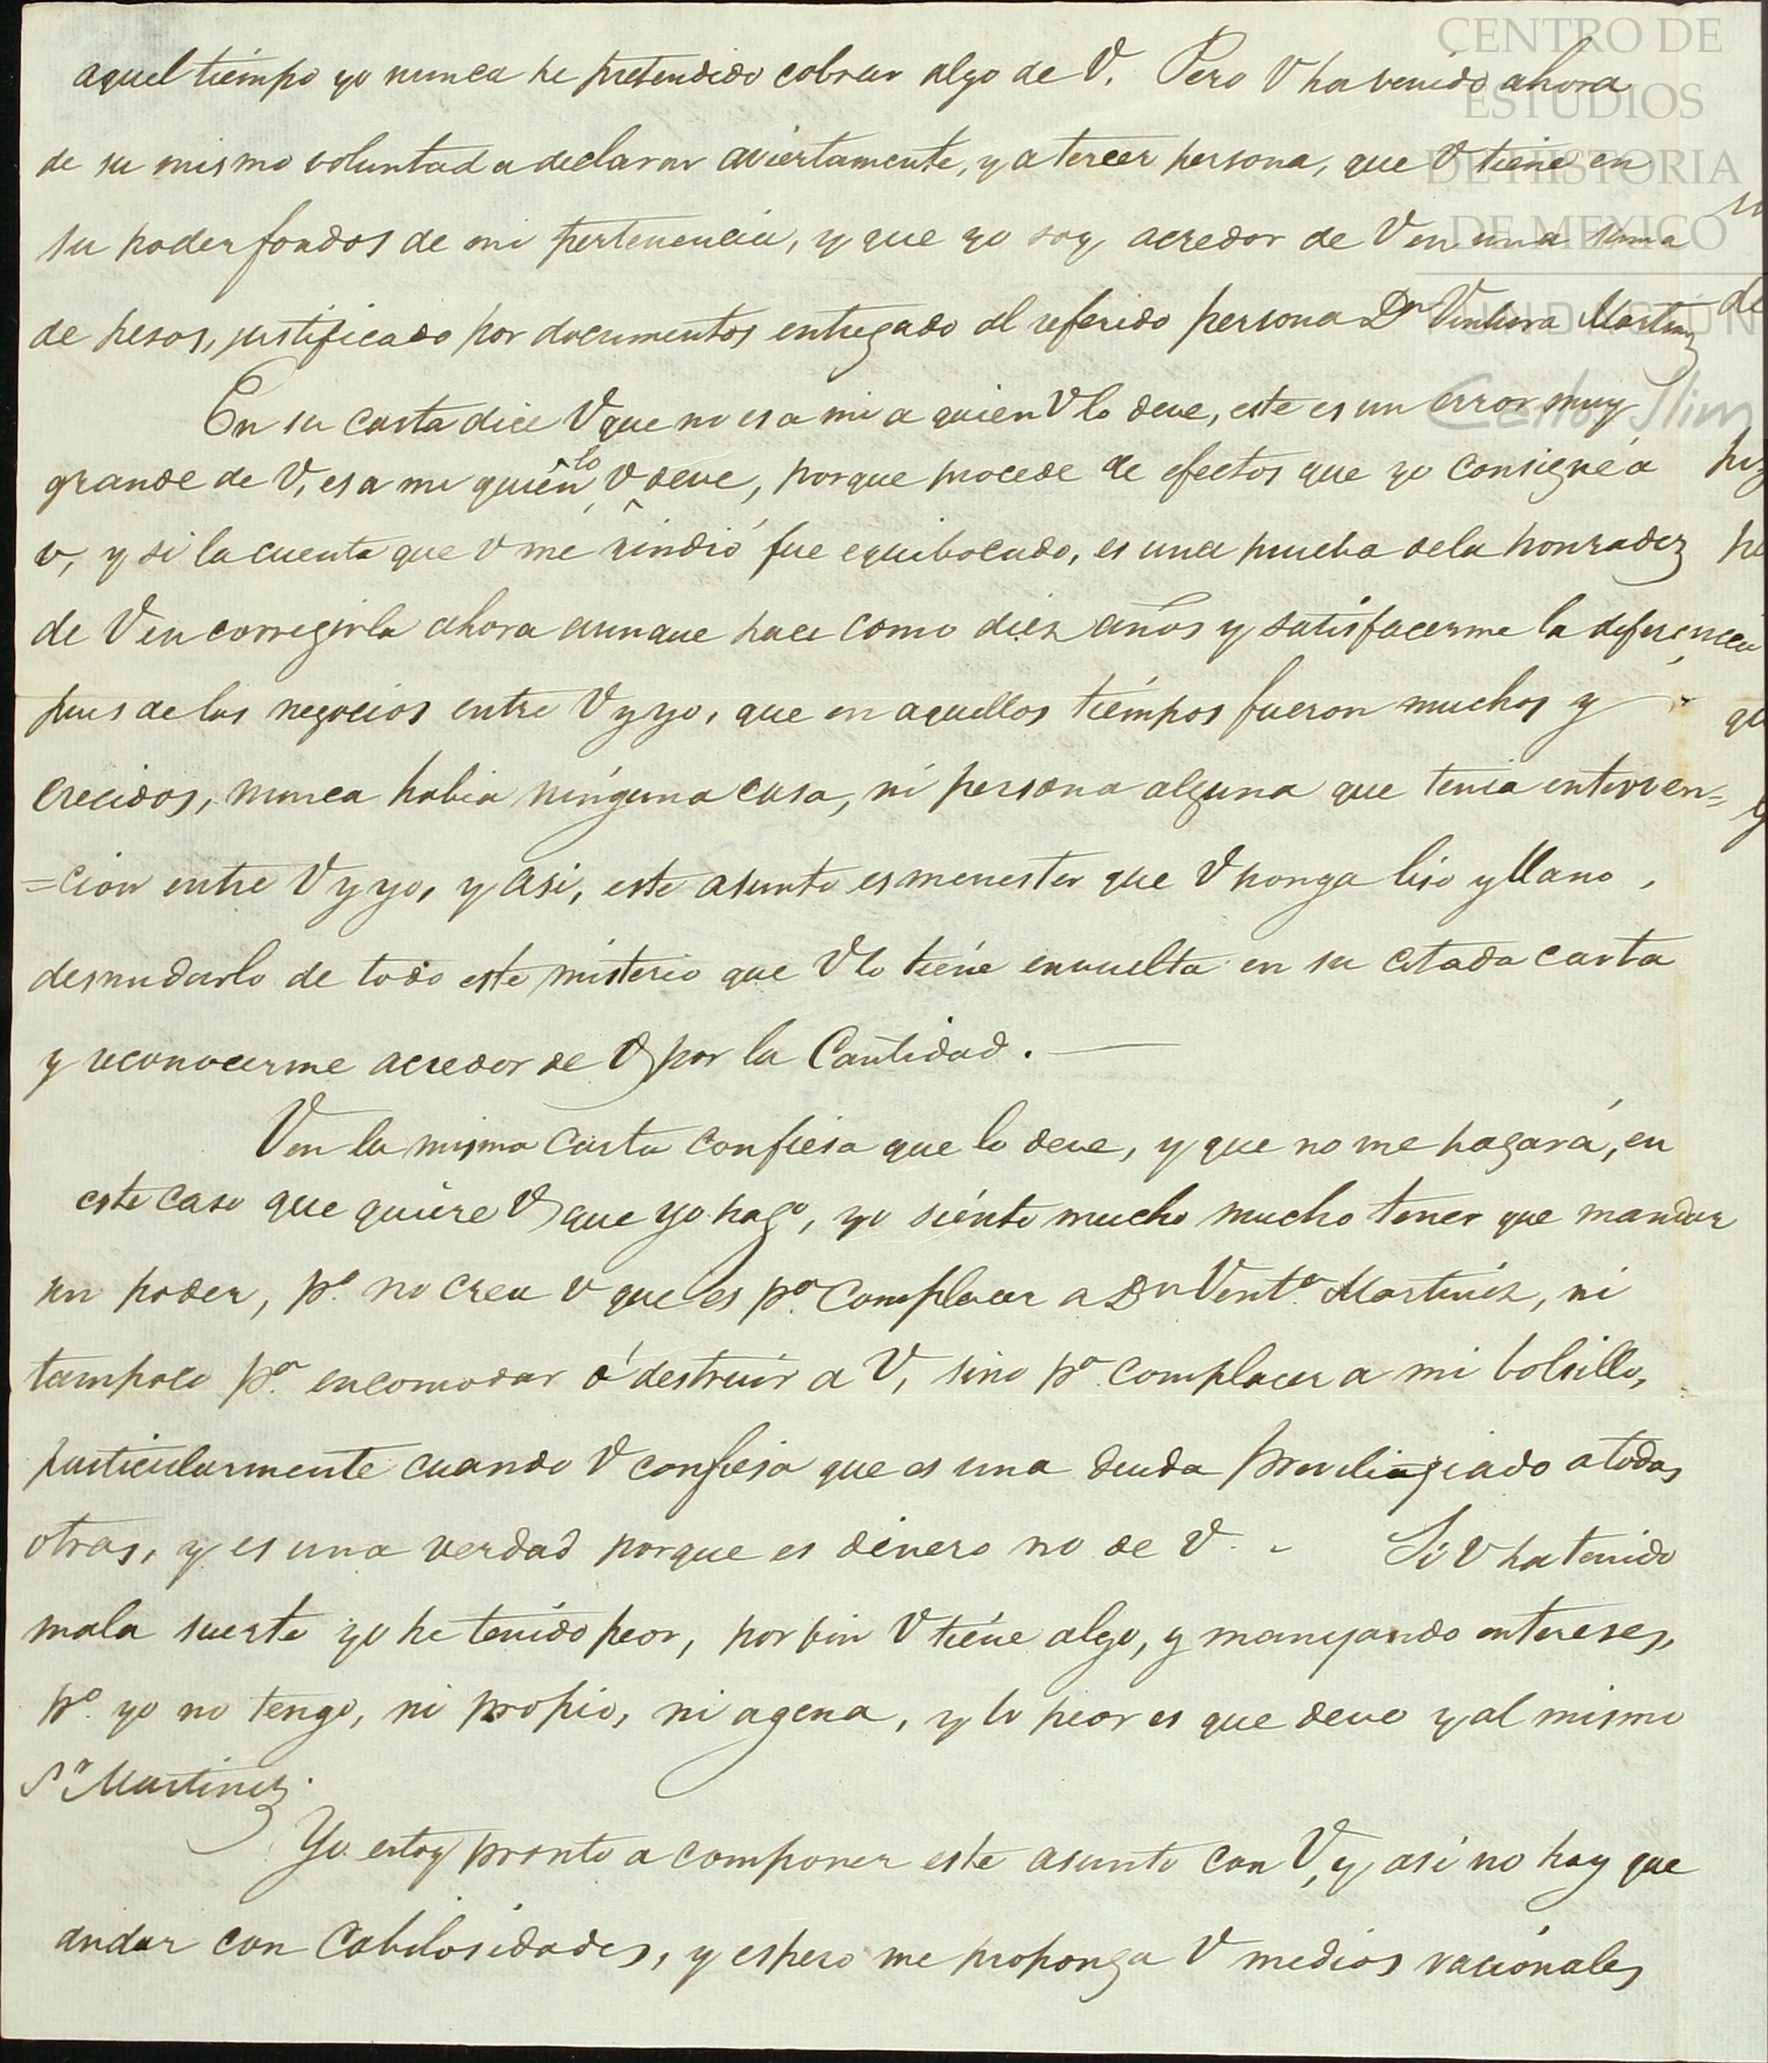 aquel tiempo yo nunca he pretendido cobrar algo de V. Pero V ha venido ahora
de su mismo voluntad a declarar aviertamente, y a tercer persona, que V tiene en
su poder fondos de mi pertenencia, y que yo soy acredor de V en una suma
de pesos, justificado por documentos entregado al referido persona Dn Ventura Martinez
En su carta dice V que no es a mi a quien V lo deve, este es un error muy
grande de V, es a mi quien lo V deve, porque procede de efectos que yo consigné á
V, y si la cuenta que V me rindió fue equibocado, es una prueba de la honradez
de V en corregirla ahora aunque hace como diez años y satisfacerme la diferencia
pues de los negocios entre V y yo, que en aquellos tiempos fueron muchos y
crecidos, nunca habia ninguna casa, ni persona alguna que tenia interven=
=cion entre V y yo, y asi, este asunto es menester que V ponga liso y llano,
desnudarlo de todo este misterio que V lo tiene envuelta en su citada carta
y reconocerme acredor de V por la Cantidad. —
V en la misma carta confiesa que lo deve, y que no me pagará, en
este caso que quiere V que yo hago, yo siento mucho mucho tener que mandar
un poder, po. no crea V que es pa. complacer a Dn Venta. Martinez, ni
tampoco pa. encomodar ó destruir a V, sino pa. complacer a mi bolsillo,
particularmente cuando V confiesa que es una deuda previligiado a todas
otras, y es una verdad porque es dinero no de V. - Si V ha tenido
mala suerte yo he tenido peor, por fin V tiene algo, y manejando intereses,
po. yo no tengo, ni propio, ni agena, y lo peor es que devo y al mismo
Sr Martinez.
Yo estoy pronto a componer este asunto con V, y asi no hay que
andar con Cabilosidades, y espero me proponga V medios racionales
CENTRO DE
ESTUDIOS
DE HISTORIA
DE MEXICO
FUNDACIÓN
Carlos Slim